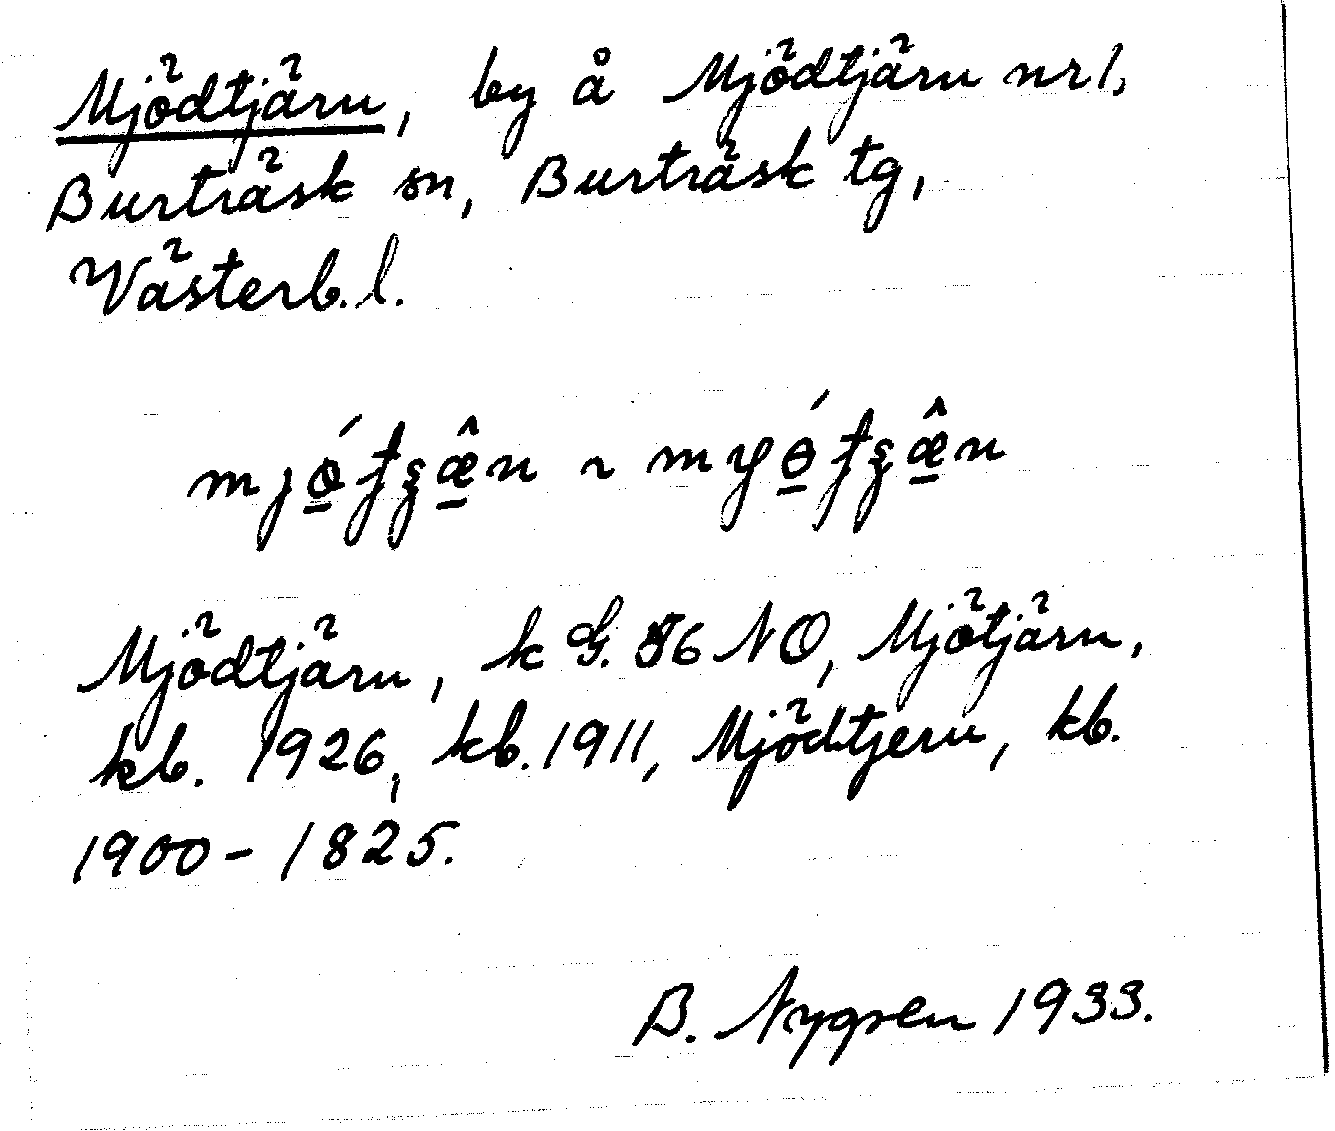 Mjödtjärn, by å Mjödtjärn nr 1,
Burträsk sn, Burträsk tg,
Västerb. l.
Mjödtjärn, k G. 86 NO, Mjötjärn,
kb. 1926, kb. 1911, Mjödtjern, kb.
1900-1825.
B. Nygren 1933.